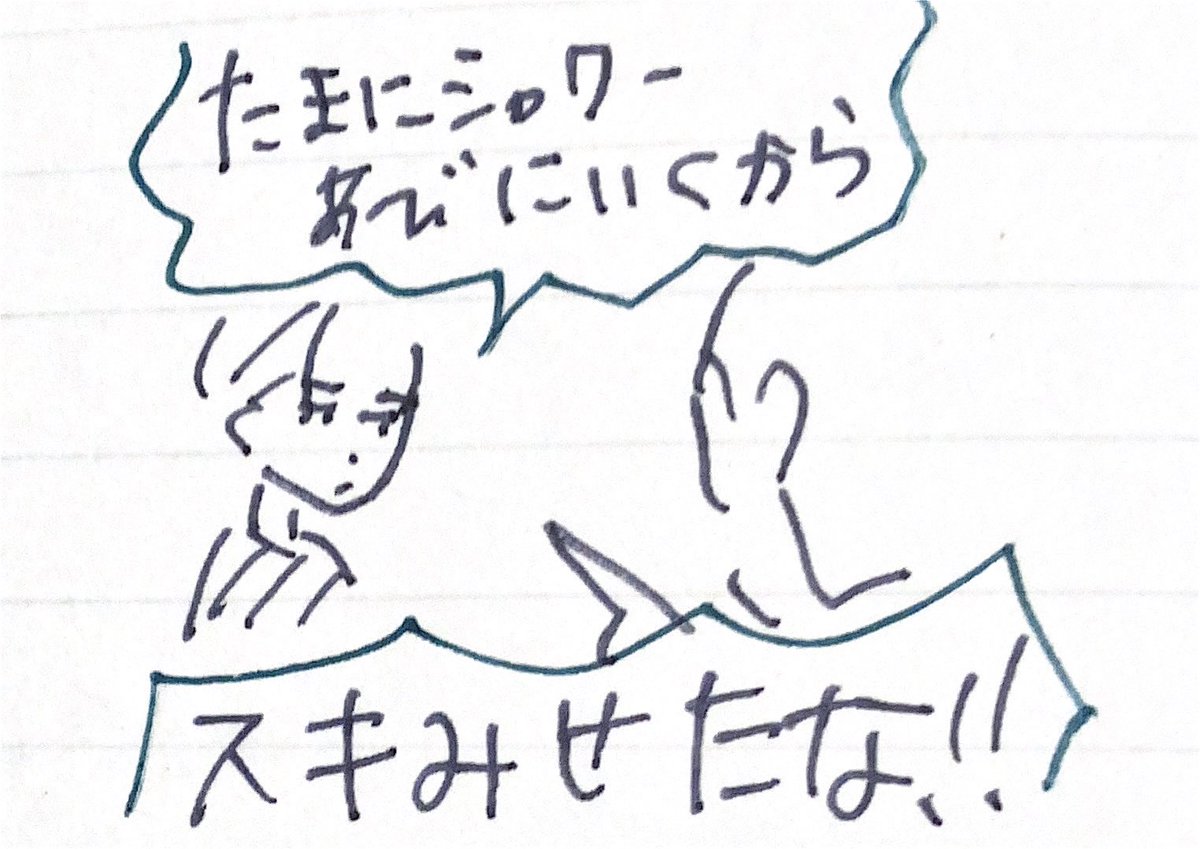 たまにシャワー
あびにいくから
スキみせたな!!